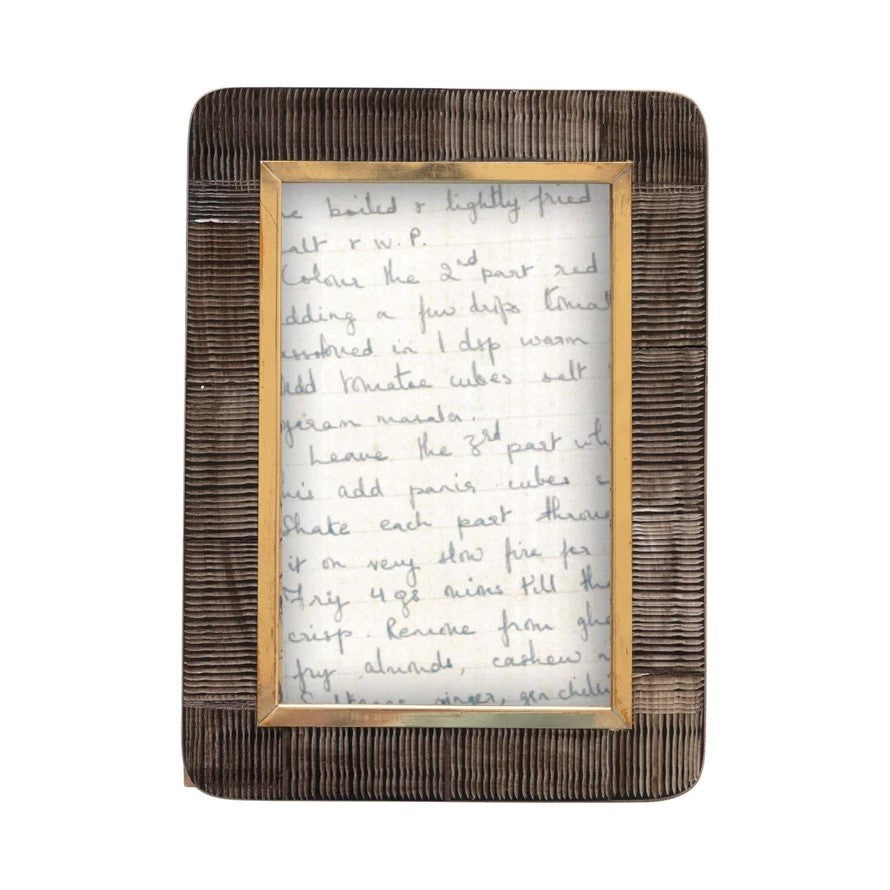 e boiled & lightly fried
alt & W.P.
Colour the 2nd part red
dding a few drops tomat
issolved in 1 dsp warm
Add tomatoe cubes salt
garam masala.
Leave the 3rd part wh
his add panir cubes
Shake each part throu
it on very slow fire for
Fry 4 gs onions till the
crisp. Remove from ghe
fry almonds, cashew n
Sultanas ginger, grn chilli